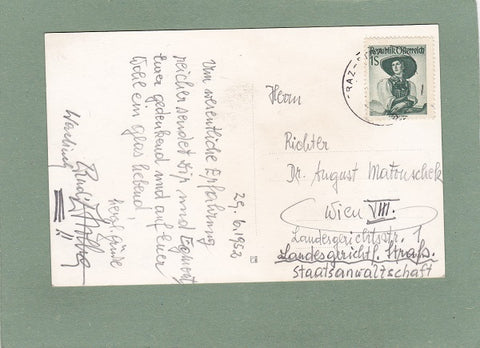 29.6.1952
Um wesentliche Erfahrung
reicher sendet Dir und Egmont
Euer gedenkend und auf Euer
Wohl ein Glas hebend,
herzl. Grüße
Republik Österreich
1S
GRAZ
Herrn
Richter
Dr. August Matouschek
Wien VIII.
Landesgerichtsstr. 1
Landesgericht f. Strafs.
Staatsanwaltschaft